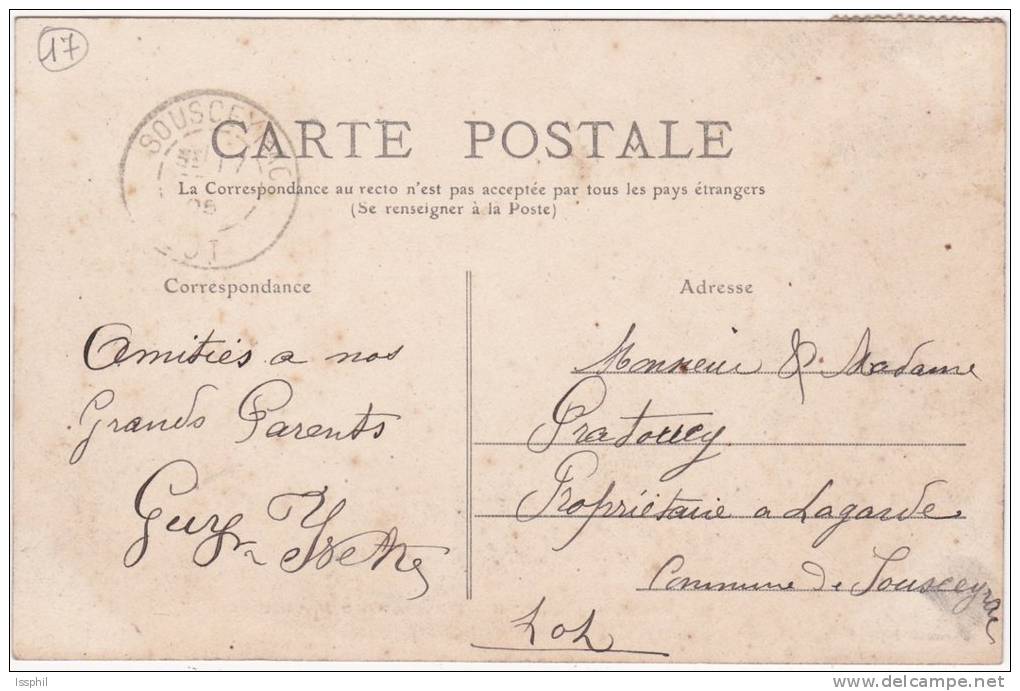 17
SOUSCEYRAC
CARTE POSTALE
La Correspondance au recto n'est pas acceptée par tous les pays étrangers
(Se renseigner à la Poste)
Correspondance
Adresse
Amitiés a nos
Grands Parents
Guy
Monsieur & Madame
Pratoucy
Propriétaire a Lagarde
Commune de Sousceyrac
Lot
Issphil
www.delcampe.net